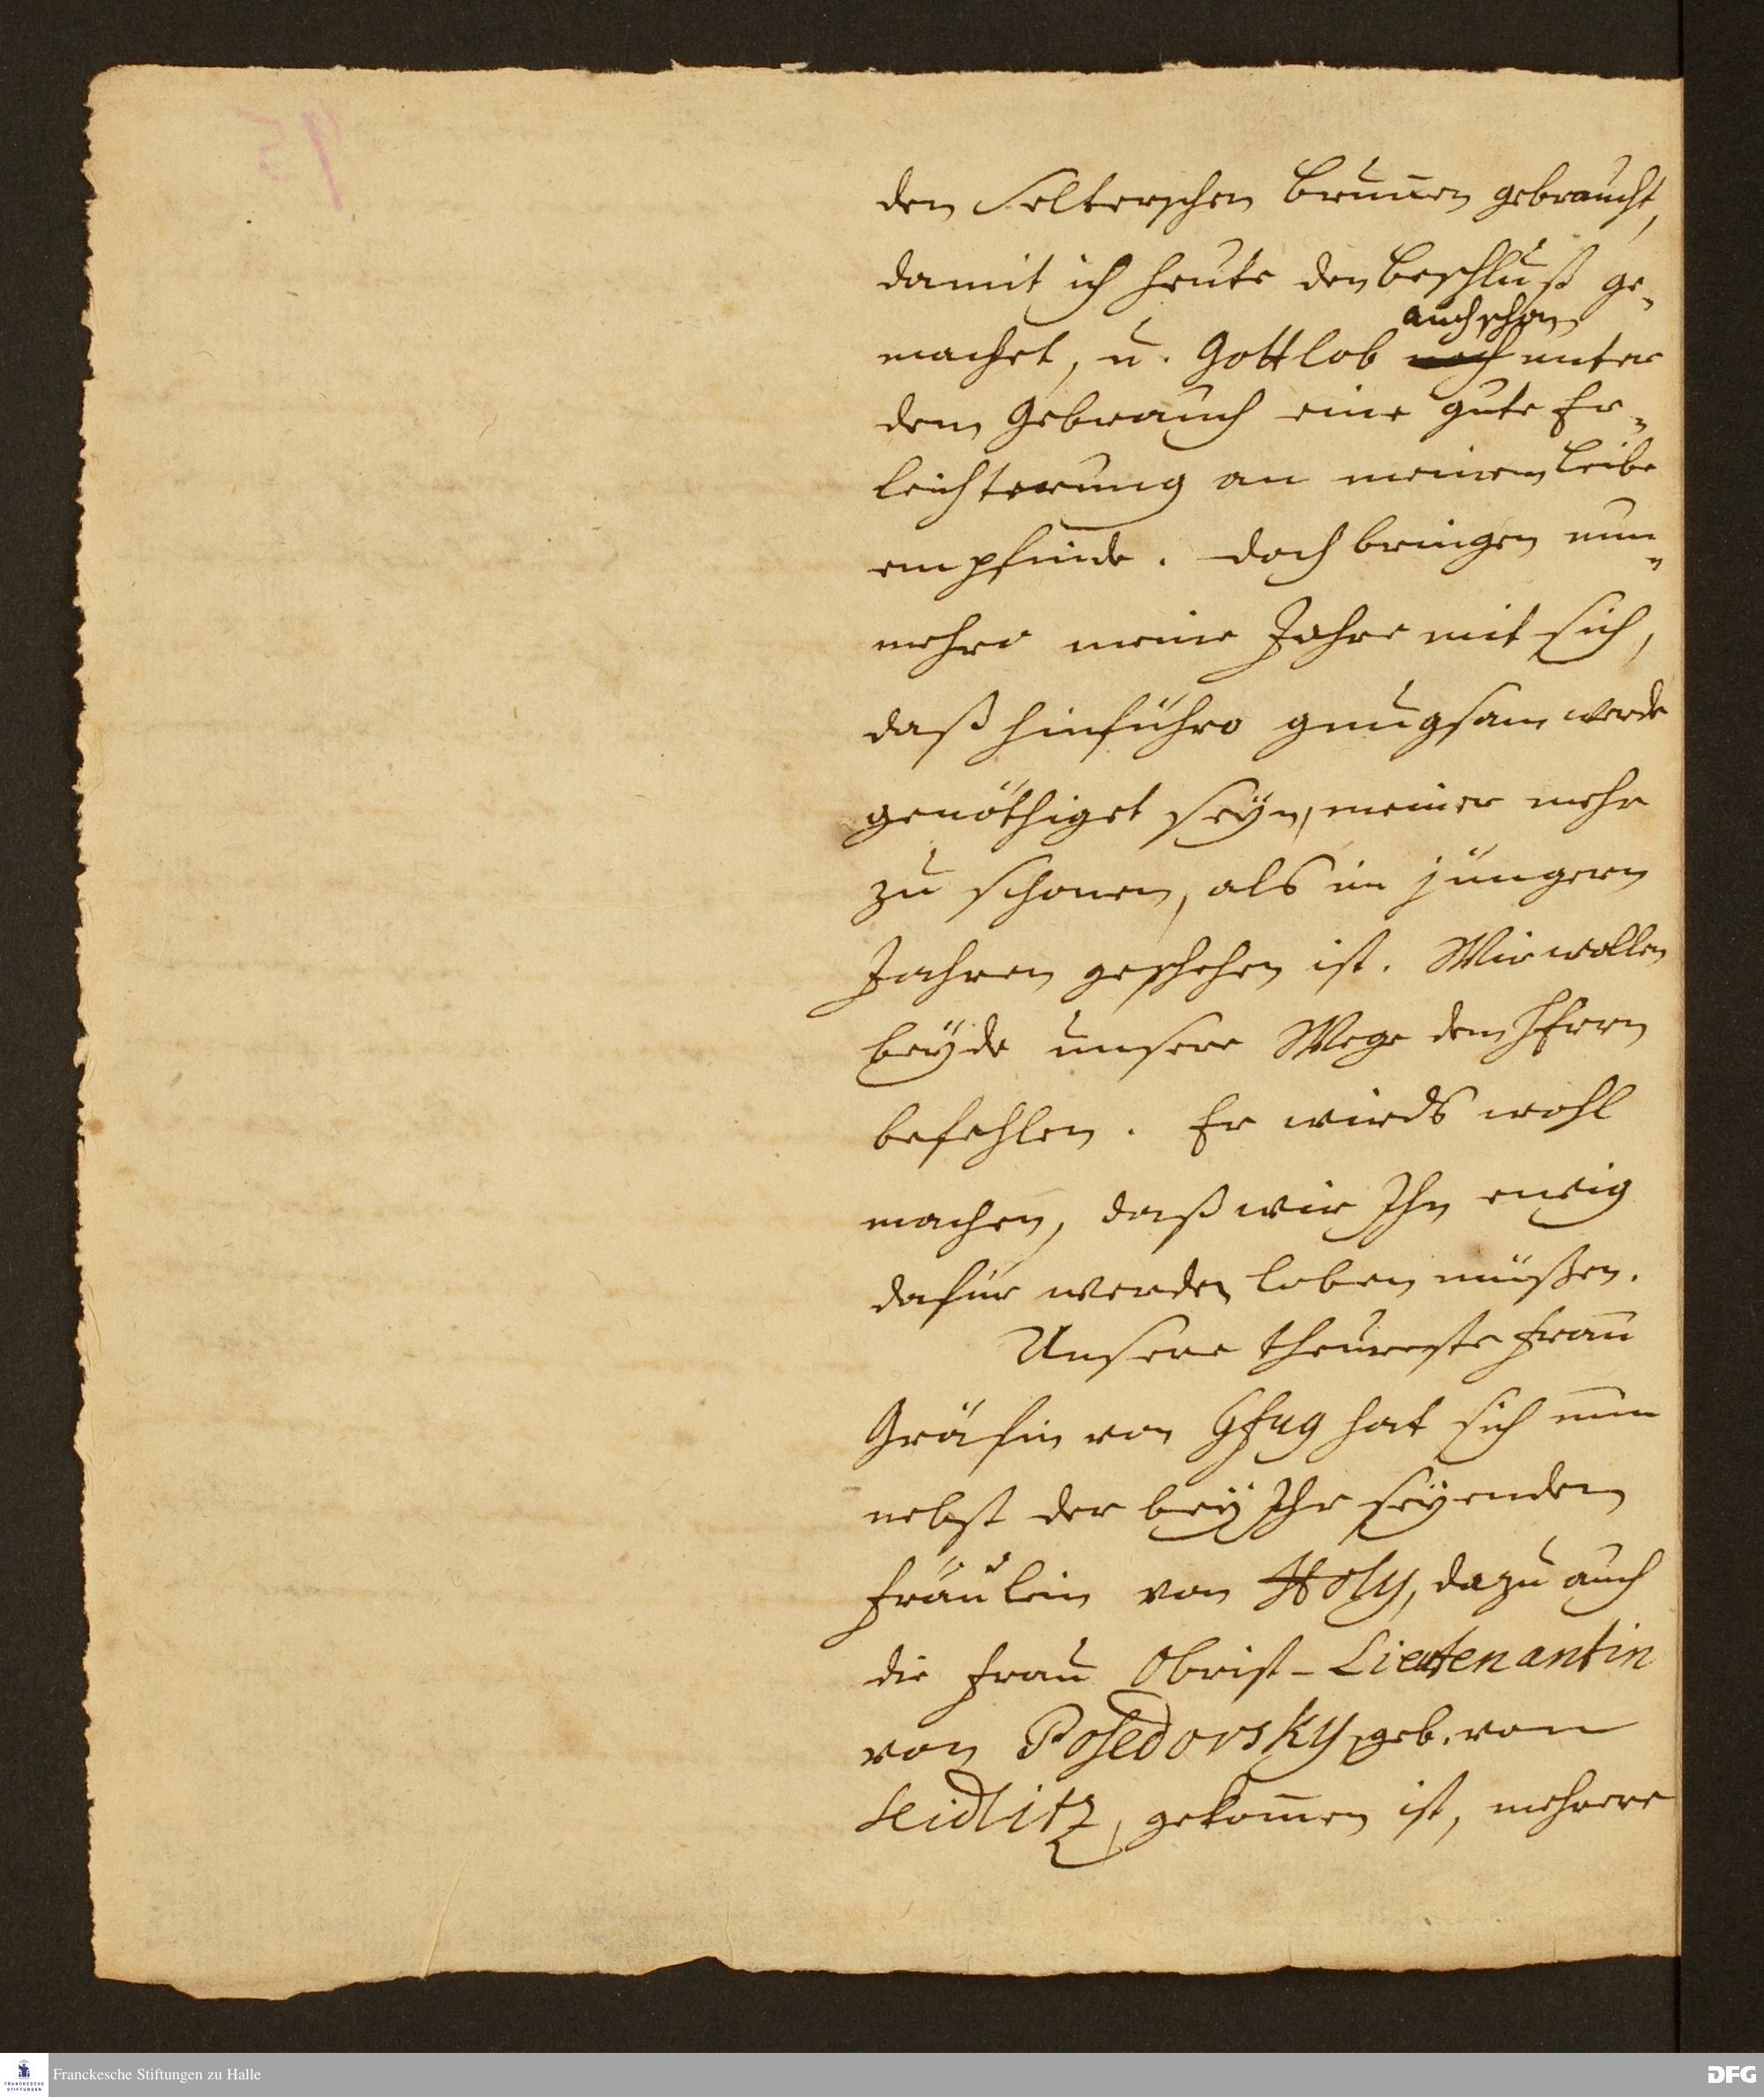 den Selterschen Brunnen gebraucht,
damit ich heute den Beschluß ge-
auch schon
machet, u. Gottlob noch unter
dem Gebrauch eine gute Er-
leichterung an meinem Leibe
empfinde. Doch bringen nun-
mehro meine Jahre mit sich,
daß hinführo gnugsam werde
genöthiget seÿn, meiner mehr
zu schonen, als in jüngern
Jahren geschehen ist. Wir wollen
beÿde unsere Wege dem HErrn
befehlen. Er wirds wohl
machen, daß wir Ihn ewig
dafür werden loben müßen.
Unsere theureste Frau
Gräfin von Gfug hat sich nun
nebst der beÿ Ihr seÿenden
Fräulein von Holy, dazu auch
die Frau Obrist-Lieutenantin
von Posedorsky, geb. von
Seidlitz, gekom̄en ist, mehrere
Franckesche Stiftungen zu Halle
FRANCKESCHE
STIFTUNGEN
DFG